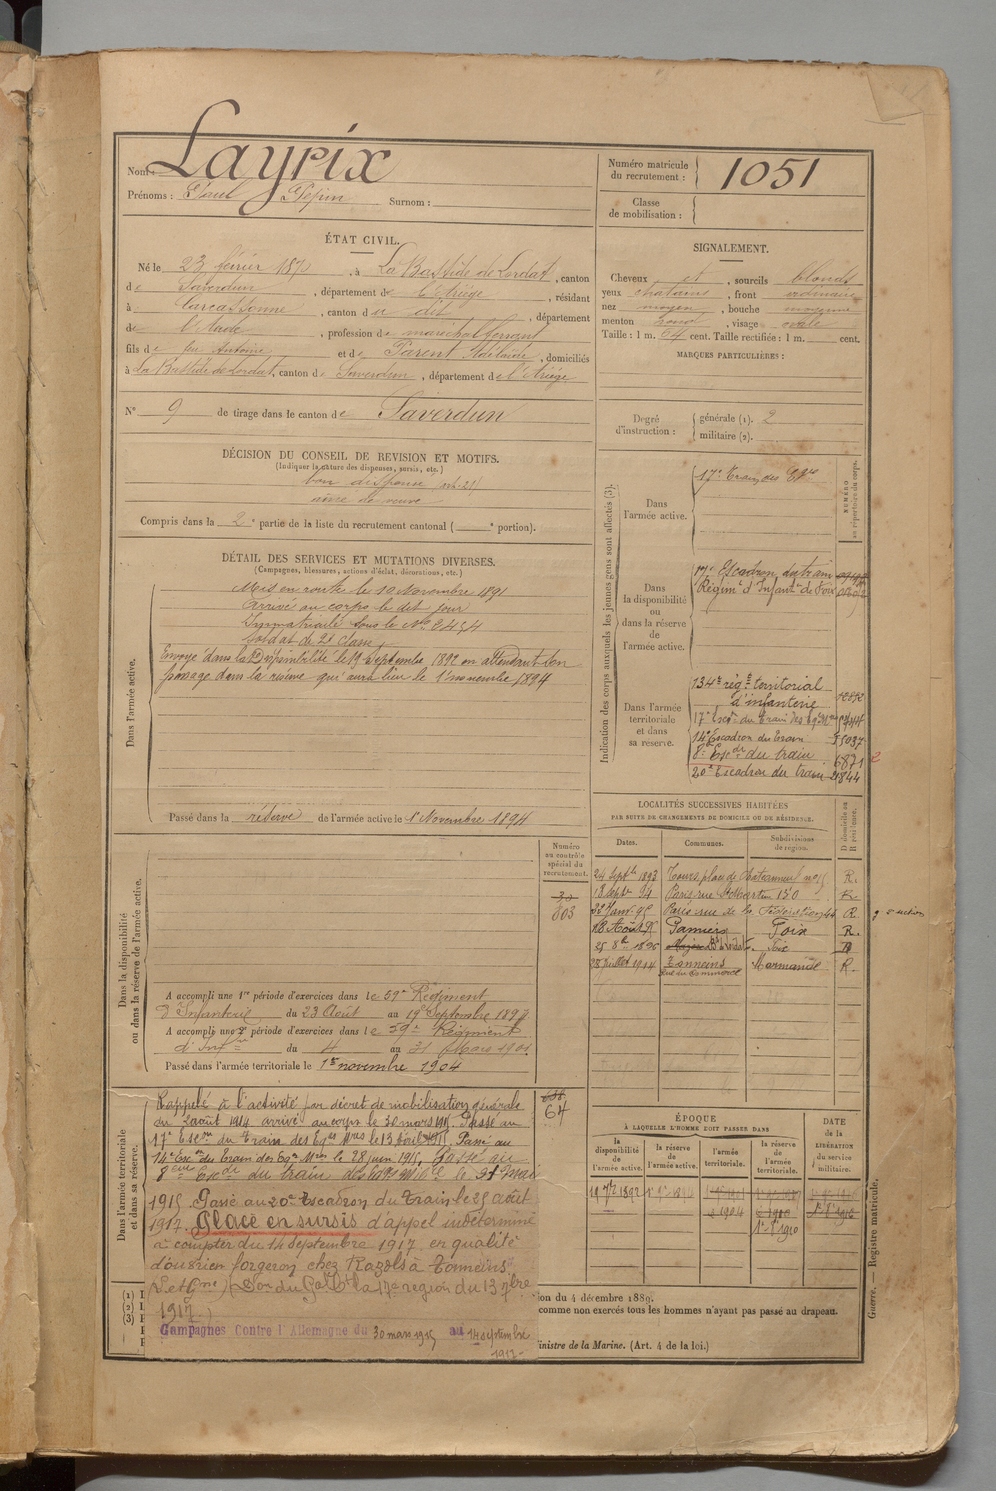 Nom : Layrix
Prénoms : Paul Pépin Surnom :
Numéro matricule du recrutement : 1051
Classe de mobilisation :
ÉTAT CIVIL.
Né le 23 février 187 , à La Bastide de Lordat, canton
de Saverdun, département de l'Ariège, résidant
à Carcassonne, canton d u dit, département
de l'Aude, profession de maréchal ferrant
fils de feu Antoine et de Parent Adélaïde, domiciliés
à La Bastide de Lordat, canton de Saverdun, département de l'Ariège
N° 9 de tirage dans le canton de Saverdun
SIGNALEMENT.
Cheveux et, sourcils blonds
yeux chatains, front ordinaire
nez moyen, bouche moyenne
menton rond, visage ovale
Taille : 1 m. 64 cent. Taille rectifiée : 1 m. cent.
MARQUES PARTICULIÈRES :
Degré d'instruction : générale (1). 2
militaire (2).
DÉCISION DU CONSEIL DE REVISION ET MOTIFS.
(Indiquer la nature des dispenses, sursis, etc.)
bon dispensé art. 21
ainé de veuve
Compris dans la 2e partie de la liste du recrutement cantonal ( e portion).
DÉTAIL DES SERVICES ET MUTATIONS DIVERSES.
(Campagnes, blessures, actions d'éclat, décorations, etc.)
Dans l'armée active.
Mis en route le 10 Novembre 1891
arrivé au corps le dit jour
Immatriculé sous le No 2454
soldat de 2e classe
Envoyé dans la disponibilité le 19 Septembre 1892 en attendant son
passage dans la réserve qui aura lieu le 1er novembre 1894
Passé dans la réserve de l'armée active le 1er Novembre 1894
Indication des corps auxquels les jeunes gens sont affectés (3).
NUMÉRO au répertoire du corps.
Dans l'armée active.
17e Train des Eqges
Dans la disponibilité ou dans la réserve de l'armée active.
17e Escadron du train
Régimt d'Infantie de Foix
Dans l'armée territoriale et dans sa réserve.
134e régt territorial
d'infanterie
17e Escon du Train des Eqes Mres
14e Escadron du Train 35037
8e Escon du train 6871
20e Escadron du train 21844
LOCALITÉS SUCCESSIVES HABITÉES
PAR SUITE DE CHANGEMENTS DE DOMICILE OU DE RÉSIDENCE.
Dates. Communes. Subdivisions de région. D domicile ou R résidence.
24 Septbre 1893 Tours, place de Chateauneuf no 15 R.
18 septe 94 Paris, rue St Martin 130 R.
Janv. 95 Paris rue de la Fédération 44 R.
Août 95 Pamiers Foix R.
25 8bre 1896 Foix
28 juillet 1914 Tonneins Marmande R.
rue du Commerce
Numéro au contrôle spécial du recrutement.
30
803
Dans la disponibilité ou dans la réserve de l'armée active.
A accompli une 1re période d'exercices dans le 59e Régiment
d'Infanterie du 23 Août au 19 Septembre 1897
A accompli une 2e période d'exercices dans le 59e Régiment
d'Infrie du 4 au 31 Mars 1901
Passé dans l'armée territoriale le 1er novembre 1904
Dans l'armée territoriale et dans sa réserve.
64
Rappelé à l'activité par décret de mobilisation générale
du 2 août 1914 arrivé au corps le 30 mars 1915. Passé au
17e Escon du Train des Eqes Mres le 13 avril 1915. Passé au
14e Esc. du Train des Eqes Mres le 28 juin 1915. Passé au
8eme Escon du train des Eqes Mres le 31 mai
1915. Passé au 20e Escadron du Train le 25 août
1917. Placé en sursis d'appel indéterminé
à compter du 14 septembre 1917 en qualité
d'ouvrier forgeron chez Razols à Tonneins
(Let Gne) (Don du Gal Ct la 17e région du 13 7bre
1917.)
Campagnes Contre l'Allemagne du 30 mars 1915 au 14 septembre
1917
ÉPOQUE
À LAQUELLE L'HOMME DOIT PASSER DANS
la disponibilité de l'armée active. la réserve de l'armée active. l'armée territoriale. la réserve de l'armée territoriale.
DATE de la LIBÉRATION du service militaire.
19 7bre 1892
1904
1er 8bre 1910
ion du 4 décembre 1889.
comme non exercés tous les hommes n'ayant pas passé au drapeau.
inistre de la Marine. (Art. 4 de la loi.)
Guerre. — Registre matricule.